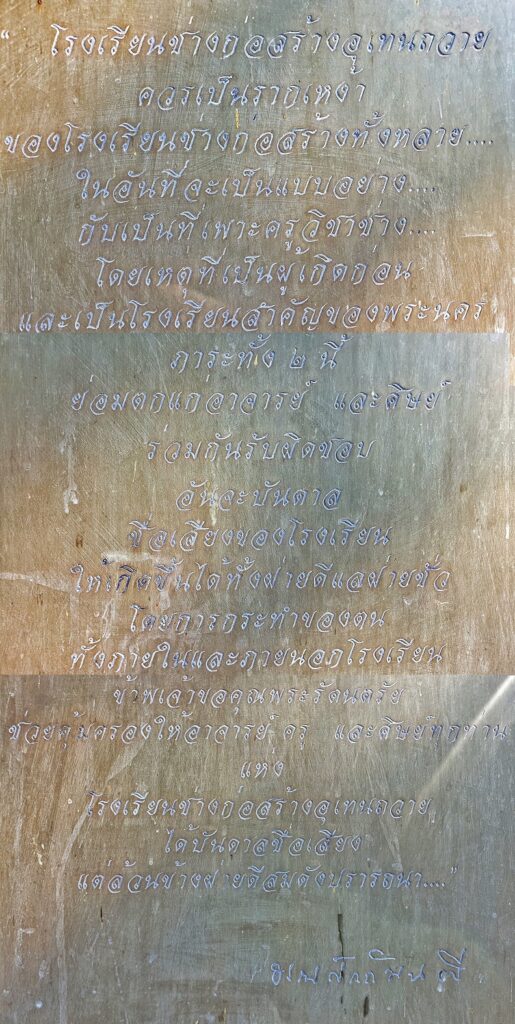 “ โรงเรียนช่างก่อสร้างอุเทนถวาย
ควรเป็นรากเหง้า
ของโรงเรียนช่างก่อสร้างทั้งหลาย....
ในอันที่จะเป็นแบบอย่าง....
กับเป็นที่เพาะครูวิชาช่าง....
โดยเหตุที่เป็นผู้เกิดก่อน
และเป็นโรงเรียนสำคัญของพระนคร
ภาระทั้ง ๒ นี้
ย่อมตกแก่อาจารย์ และศิษย์
ร่วมกันรับผิดชอบ
อันจะบันดาล
ชื่อเสียงของโรงเรียน
ให้เกิดขึ้นได้ทั้งฝ่ายดีแลฝ่ายชั่ว
โดยการกระทำของตน
ทั้งภายในและภายนอกโรงเรียน
ข้าพเจ้าขอคุณพระรัตนตรัย
ช่วยคุ้มครองให้อาจารย์ ครู และศิษย์ทุกท่าน
แห่ง
โรงเรียนช่างก่อสร้างอุเทนถวาย
ได้บันดาลชื่อเสียง
แต่ล้วนข้างฝ่ายดีสมดังปรารถนา....”